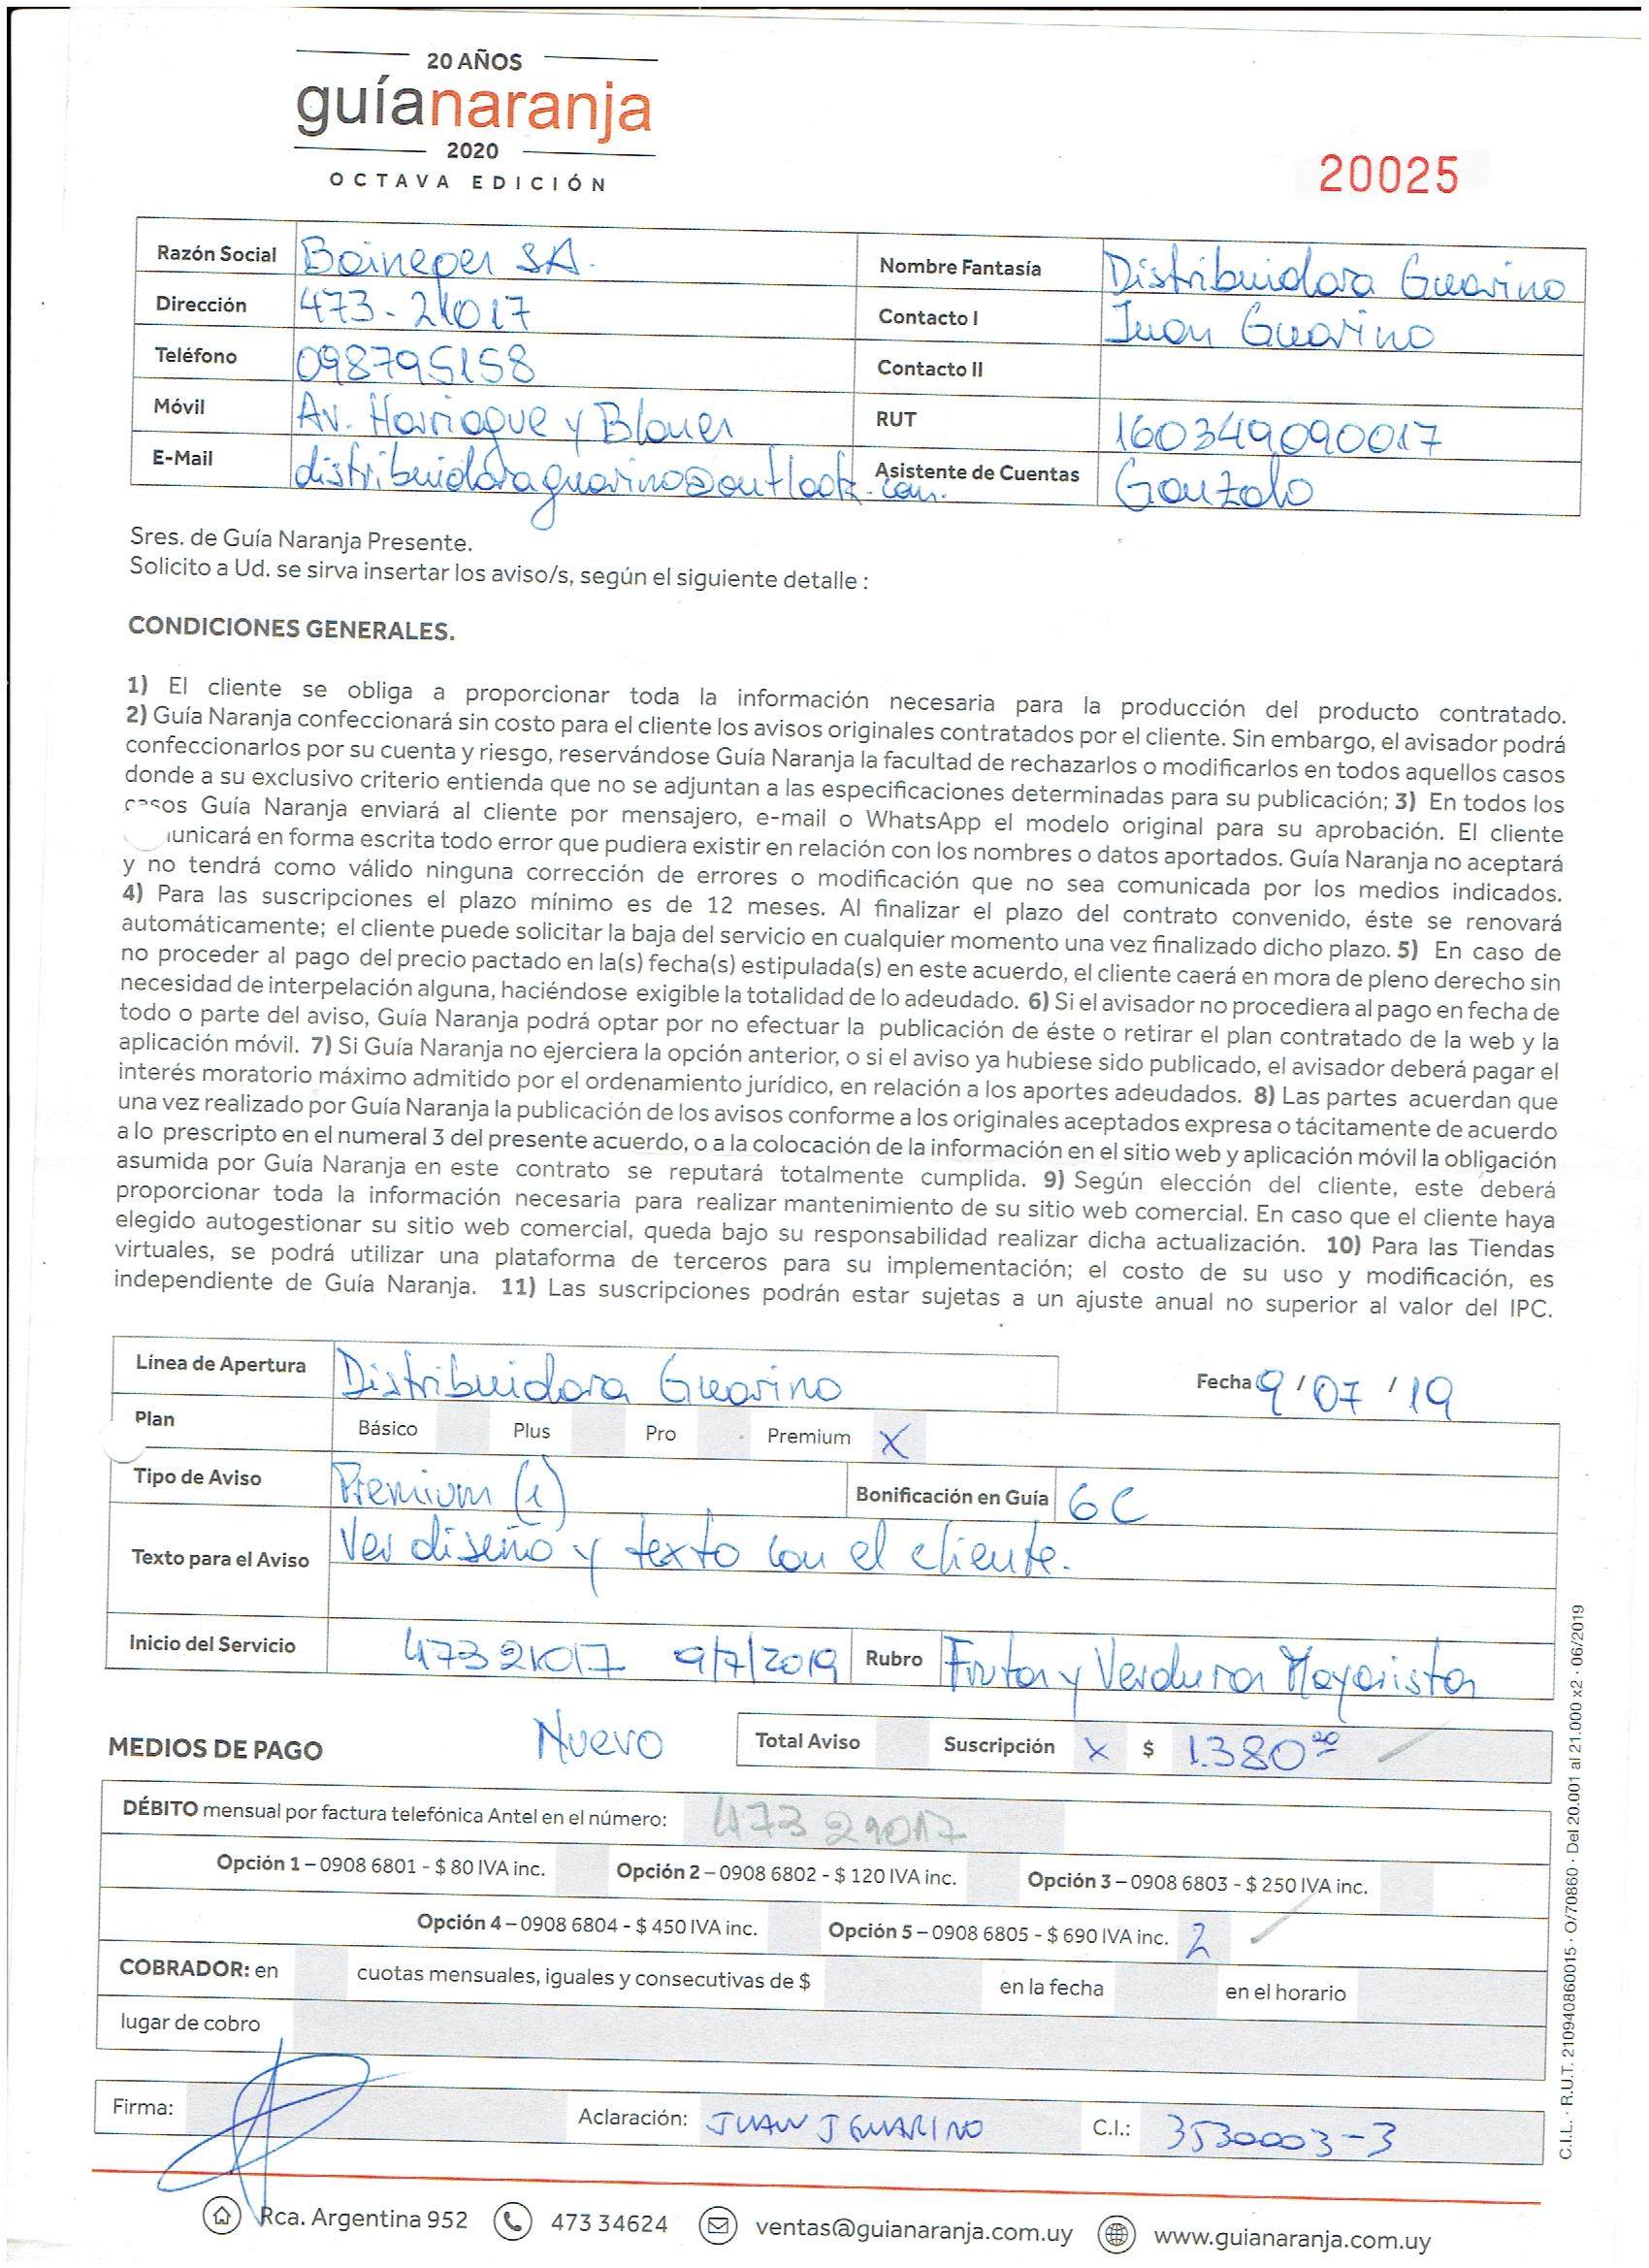 20 AÑOS
guíanaranja
2020
OCTAVA EDICIÓN
20025
Razón Social Boineper SA. Nombre Fantasía Distribuidora Guarino
Dirección 473-21017 Contacto I Juan Guarino
Teléfono 098795158 Contacto II
Móvil Av. Harriague y Blanes RUT 160349090017
E-Mail distribuidoraguarino@outlook.com. Asistente de Cuentas Gonzalo
Sres. de Guía Naranja Presente.
Solicito a Ud. se sirva insertar los aviso/s, según el siguiente detalle :
CONDICIONES GENERALES.
1) El cliente se obliga a proporcionar toda la información necesaria para la producción del producto contratado.
2) Guía Naranja confeccionará sin costo para el cliente los avisos originales contratados por el cliente. Sin embargo, el avisador podrá
confeccionarlos por su cuenta y riesgo, reservándose Guía Naranja la facultad de rechazarlos o modificarlos en todos aquellos casos
donde a su exclusivo criterio entienda que no se adjuntan a las especificaciones determinadas para su publicación; 3) En todos los
casos Guía Naranja enviará al cliente por mensajero, e-mail o WhatsApp el modelo original para su aprobación. El cliente
unicará en forma escrita todo error que pudiera existir en relación con los nombres o datos aportados. Guía Naranja no aceptará
y no tendrá como válido ninguna corrección de errores o modificación que no sea comunicada por los medios indicados.
4) Para las suscripciones el plazo mínimo es de 12 meses. Al finalizar el plazo del contrato convenido, éste se renovará
automáticamente; el cliente puede solicitar la baja del servicio en cualquier momento una vez finalizado dicho plazo. 5) En caso de
no proceder al pago del precio pactado en la(s) fecha(s) estipulada(s) en este acuerdo, el cliente caerá en mora de pleno derecho sin
necesidad de interpelación alguna, haciéndose exigible la totalidad de lo adeudado. 6) Si el avisador no procediera al pago en fecha de
todo o parte del aviso, Guía Naranja podrá optar por no efectuar la publicación de éste o retirar el plan contratado de la web y la
aplicación móvil. 7) Si Guía Naranja no ejerciera la opción anterior, o si el aviso ya hubiese sido publicado, el avisador deberá pagar el
interés moratorio máximo admitido por el ordenamiento jurídico, en relación a los aportes adeudados. 8) Las partes acuerdan que
una vez realizado por Guía Naranja la publicación de los avisos conforme a los originales aceptados expresa o tácitamente de acuerdo
a lo prescripto en el numeral 3 del presente acuerdo, o a la colocación de la información en el sitio web y aplicación móvil la obligación
asumida por Guía Naranja en este contrato se reputará totalmente cumplida. 9) Según elección del cliente, este deberá
proporcionar toda la información necesaria para realizar mantenimiento de su sitio web comercial. En caso que el cliente haya
elegido autogestionar su sitio web comercial, queda bajo su responsabilidad realizar dicha actualización. 10) Para las Tiendas
virtuales, se podrá utilizar una plataforma de terceros para su implementación; el costo de su uso y modificación, es
independiente de Guía Naranja. 11) Las suscripciones podrán estar sujetas a un ajuste anual no superior al valor del IPC.
Línea de Apertura Distribuidora Guarino Fecha 9/07/19
Plan Básico Plus Pro Premium X
Tipo de Aviso Premium (1) Bonificación en Guía 6C
Texto para el Aviso Ver diseño y texto con el cliente.
Inicio del Servicio 47321017 9/7/2019 Rubro Fruta y Verdura Mayorista
MEDIOS DE PAGO Nuevo Total Aviso Suscripción X $ 1.380 00
DÉBITO mensual por factura telefónica Antel en el número: 47321017
Opción 1 – 0908 6801 - $ 80 IVA inc. Opción 2 – 0908 6802 - $ 120 IVA inc. Opción 3 – 0908 6803 - $ 250 IVA inc.
Opción 4 – 0908 6804 - $ 450 IVA inc. Opción 5 – 0908 6805 - $ 690 IVA inc. 2
COBRADOR: en cuotas mensuales, iguales y consecutivas de $ en la fecha en el horario
lugar de cobro
Firma: Aclaración: JUAN J GUARINO C.I.: 3530003-3
Rca. Argentina 952 473 34624 ventas@guianaranja.com.uy www.guianaranja.com.uy
C.I.L. · R.U.T. 210940860015 · O/70860 · Del 20.001 al 21.000 x2 · 06/2019